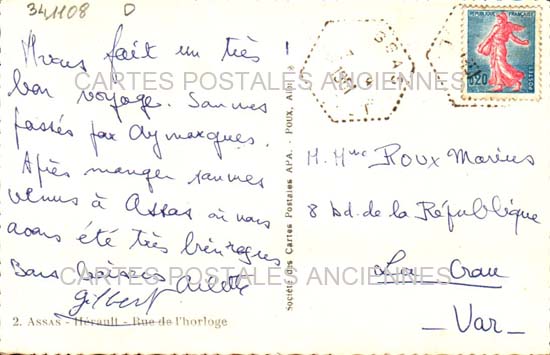 341108 D
Avons fait un très
bon voyage. Sommes
passés par Aymargues.
Après manger sommes
venus à Assas où nous
avons été très bien reçus
Bons baisers Arlette
Gilbert
2. ASSAS - Hérault - Rue de l'horloge
Société des Cartes Postales APA. - POUX, Albi
REPUBLIQUE FRANÇAISE
0,20
POSTES
M. Mme Roux Marius
8 Bd. de la République
La Crau
- Var -
CARTES POSTALES ANCIENNES
CARTES POSTALES ANCIENNES